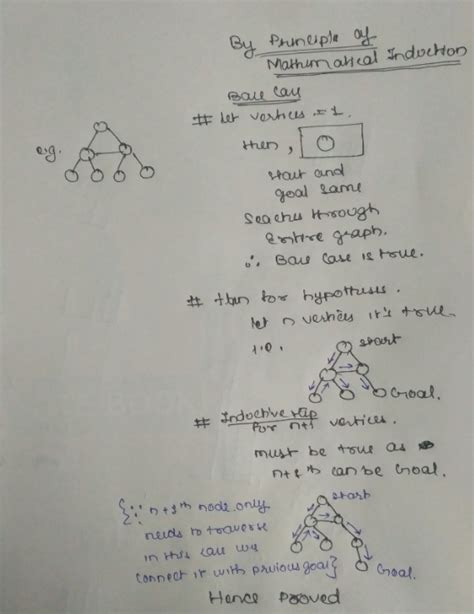 By Principle of
Mathematical Induction
Base Case
# Let vertices = 1.
e.g.
then,
start and
goal same
Seaches through
Entire graph.
∴ Base Case is true.
# then for hypothesis.
let n vertices it's true.
i.e.
start
Goal.
# Inductive step
for n+1 vertices.
must be true as
n+1th can be Goal.
{∵ n+1th node only
needs to traverse
in this case we
connect it with previous goal}
start
Goal.
Hence Proved